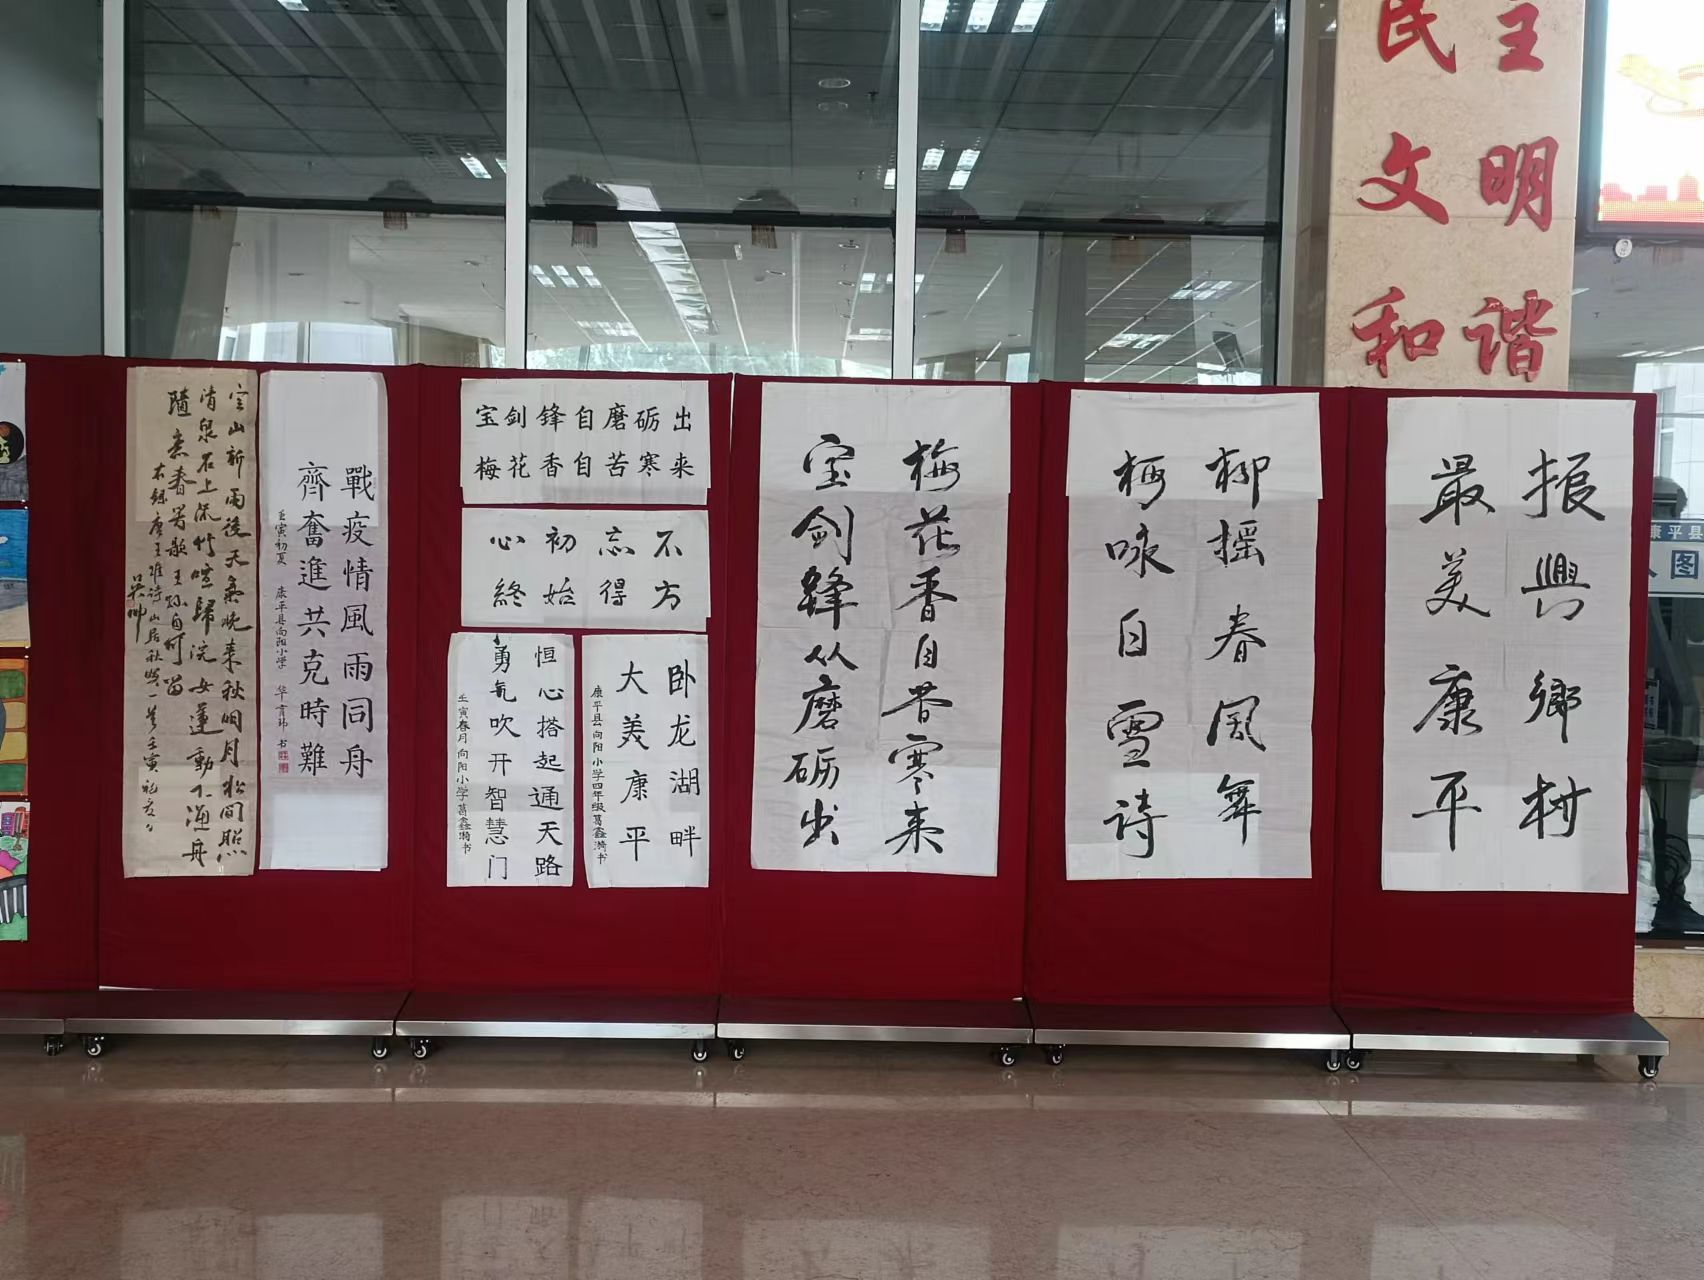 民主
文明
和谐
空山新雨後天氣晚来秋明月松间照
清泉石上流竹喧歸浣女蓮動下漁舟
隨意春芳歇王孫自可留
右録唐王维诗山居秋暝一首壬寅
吴帅
戰疫情風雨同舟
齊奮進共克時難
壬寅初夏 康平县向阳小学 华育玮书
宝剑锋自磨砺出
梅花香自苦寒来
不忘初心
方得始終
卧龙湖畔
大美康平
康平县向阳小学四年级葛鑫漪书
恒心搭起通天路
勇氣吹开智慧门
壬寅春月向阳小学葛鑫漪书
梅花香自苦寒来
宝剑鋒从磨砺出
柳摇春风舞
梅咏自雪诗
振興鄉村
最美康平
康平县
图